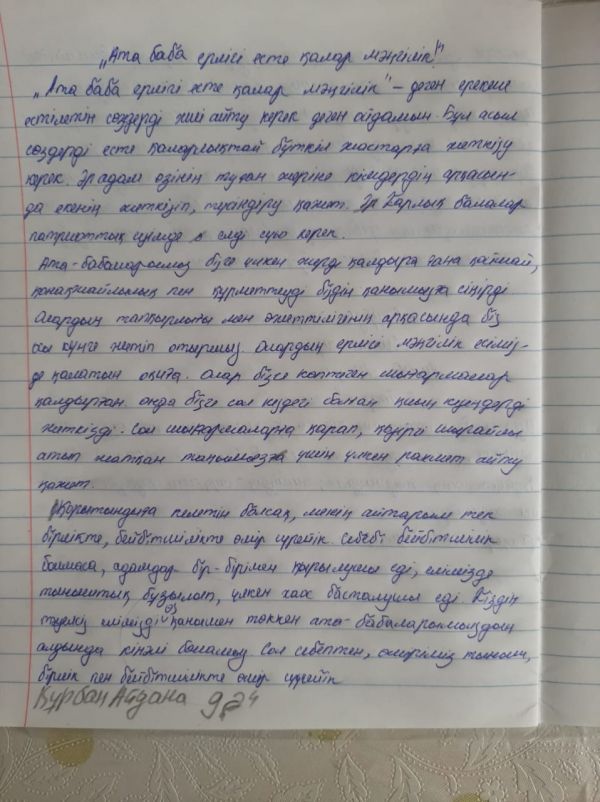 „Ата баба ерлігі есте қалар мәңгілік!"
„Ата баба ерлігі есте қалар мәңгілік" – деген ерекше
естілетін сөздерді жиі айту керек деген ойдамын. Бұл асыл
сөздерді есте қаларлықтай бүткіл жастарға жеткізу
керек. Әр адам өзінің туған жеріне кімдердің арқасын-
да екенің жеткізіп, түсіндіру қажет. Әр барлық балалар
патриоттық елді сүю керек.
Ата-бабаларымыз бізге үлкен жерді қалдырып ғана қоймай,
қонақжайлылық пен құрметтеуді біздің қанымызға сіңірді
Олардың тапқырлығы мен өжеттілігінің арқасында біз
осы күнге жетіп отырмыз. Олардың ерлігі мәңгілік есіміз-
де қалатын оқиға. Олар бізге көптеген шығармалар
қалдырған онда бізге сол кездегі болған қиын күндерді
жеткізді. Сол шығармаларға қарап, қазіргі шырайлы
атып жатқан таңымызға үшін үлкен рахмет айту
қажет.
Қорытындыға келетін болсақ, менің айтарым тек
бірлікте, бейбітшілікте өмір сүрейік. Себебі бейбітшілік
болмаса, адамдар бір-бірімен қырылушы еді, елімізде
тыныштық бұзылып, үлкен хаос басталушы еді. Біздің
тәуелсіз елімізді өз қанымен төккен ата-бабаларымыздың
алдында кінәлі боламыз Сол себептен, өміріміз тыныш,
бірлік пен бейбітшілікте өмір сүрейік
Құрбан Айдана 9